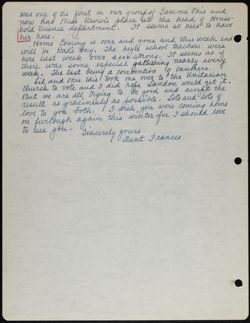 was one of the first in our group of Gamma Phis and
now has Miss Bevier's place at the head of House-
hold Science department. It seems so nice to have
her here.
Home Coming is over and gone and this week end
will be Dad's Day. The high school teachers were
here last week over 2000 strong. It seems as if
there was some especial gathering nearly every
week. The last being a convention of
Sid and I this went over to the Unitarian
church to vote and I did hope Landon would get it.
But we are all trying to be good and accept the
result as graciously as possible. Lots and lots of
love to you both. I wish you were coming home
on furlough again this winter for I should love
to see you-
Sincerely yours
Aunt Frances